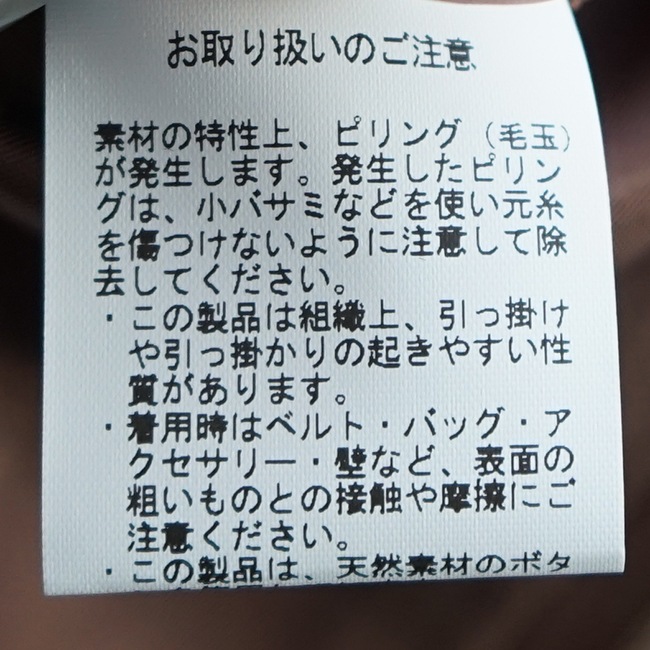 お取り扱いのご注意
素材の特性上、ピリング（毛玉）
が発生します。発生したピリン
グは、小バサミなどを使い元糸
を傷つけないように注意して除
去してください。
・この製品は組織上、引っ掛け
や引っ掛かりの起きやすい性
質があります。
・着用時はベルト・バッグ・ア
クセサリー・壁など、表面の
粗いものとの接触や摩擦にご
注意ください。
・この製品は、天然素材のボタ